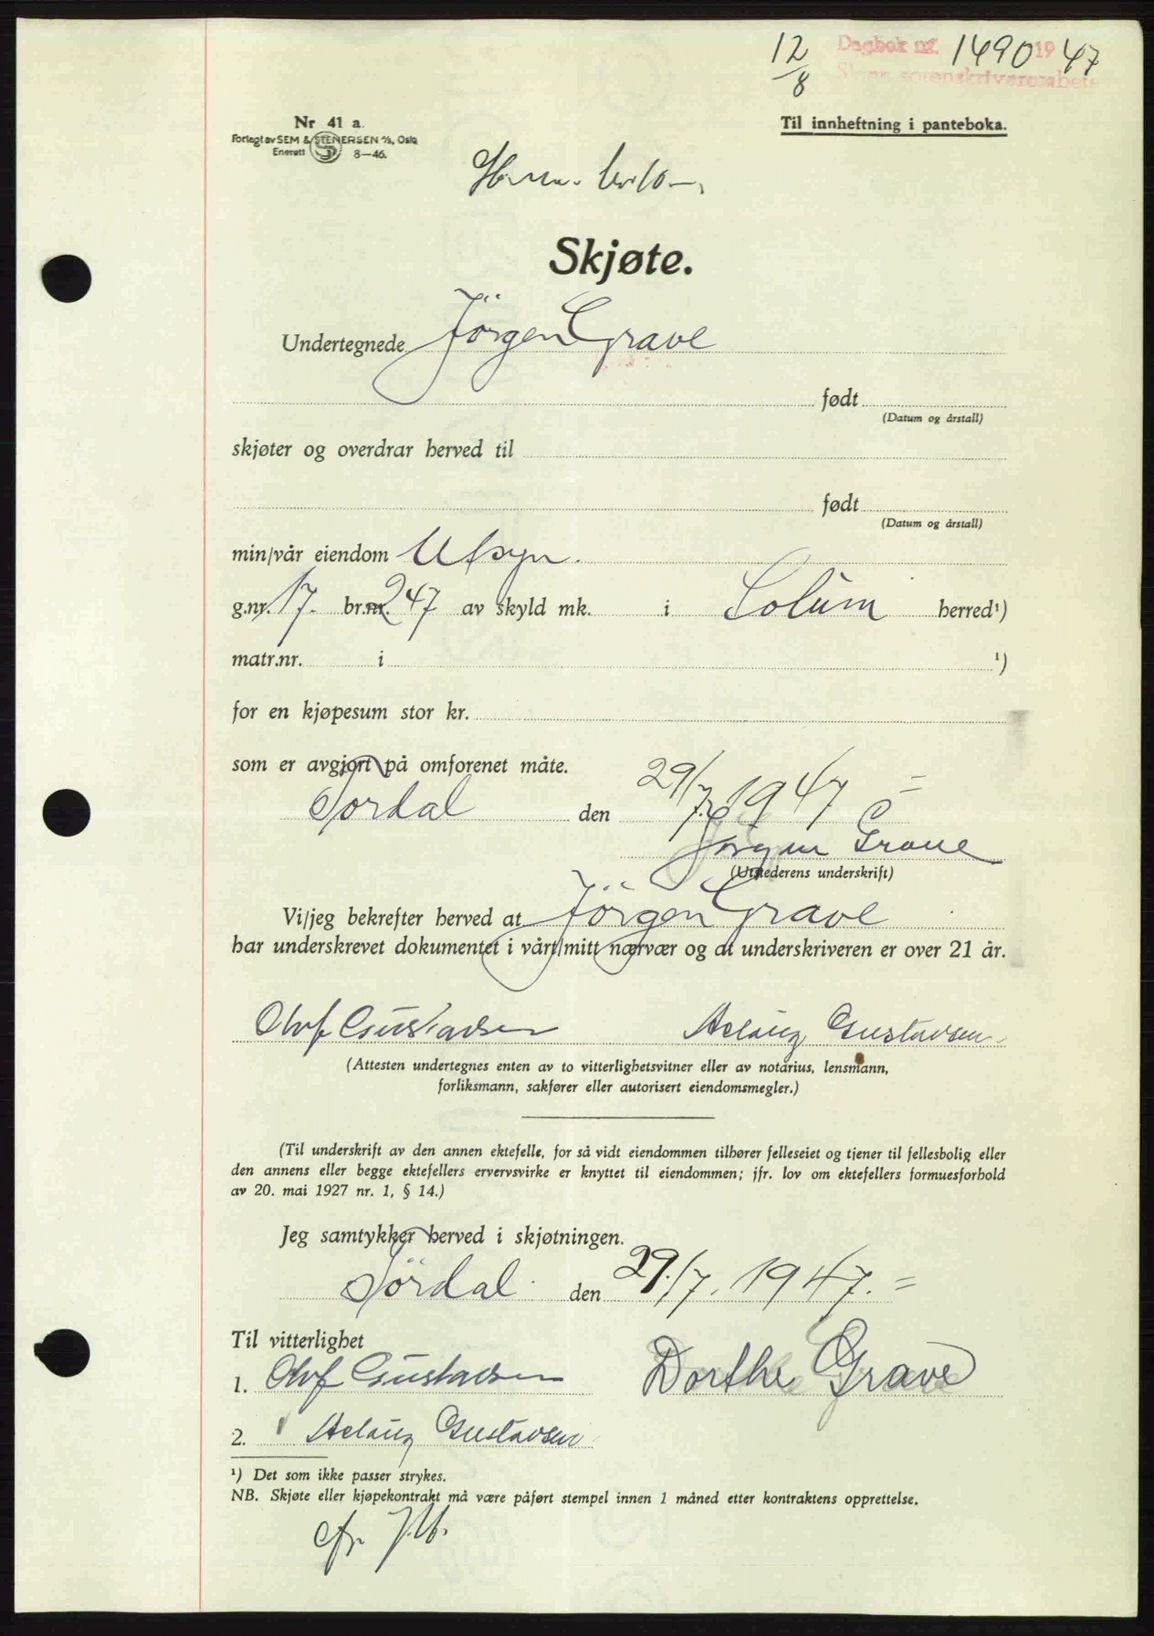 12/8 Dagbok nr. 1490 1947
sorenskriverembete
Nr 41 a.
Forlagt av SEM & STENERSEN A/S, Oslo
Enerett 8—46.
Til innheftning i panteboka.
Skjøte.
Undertegnede Jörgen Grave
født
(Datum og årstall)
skjøter og overdrar herved til
født
(Datum og årstall)
min/vår eiendom Utsyn.
g.nr. 17. br.nr. 247 av skyld mk. i Solum herred¹)
matr.nr. i ¹)
for en kjøpesum stor kr.
som er avgjort på omforenet måte.
den 29/7. 1947 =
Jørgen Grave
(Utstederens underskrift)
Vi/jeg bekrefter herved at Jörgen Grave
har underskrevet dokumentet i vårt/mitt nærvær og at underskriveren er over 21 år.
Olaf Gustavsen Aslaug Gustavsen
(Attesten undertegnes enten av to vitterlighetsvitner eller av notarius, lensmann,
forliksmann, sakfører eller autorisert eiendomsmegler.)
(Til underskrift av den annen ektefelle, for så vidt eiendommen tilhører felleseiet og tjener til fellesbolig eller
den annens eller begge ektefellers ervervsvirke er knyttet til eiendommen; jfr. lov om ektefellers formuesforhold
av 20. mai 1927 nr. 1, § 14.)
Jeg samtykker herved i skjøtningen.
den 29./7. 1947. =
Til vitterlighet
1. Olaf Gustavsen Dorthe Grave
2. Aslaug Gustavsen
¹) Det som ikke passer strykes.
NB. Skjøte eller kjøpekontrakt må være påført stempel innen 1 måned etter kontraktens opprettelse.